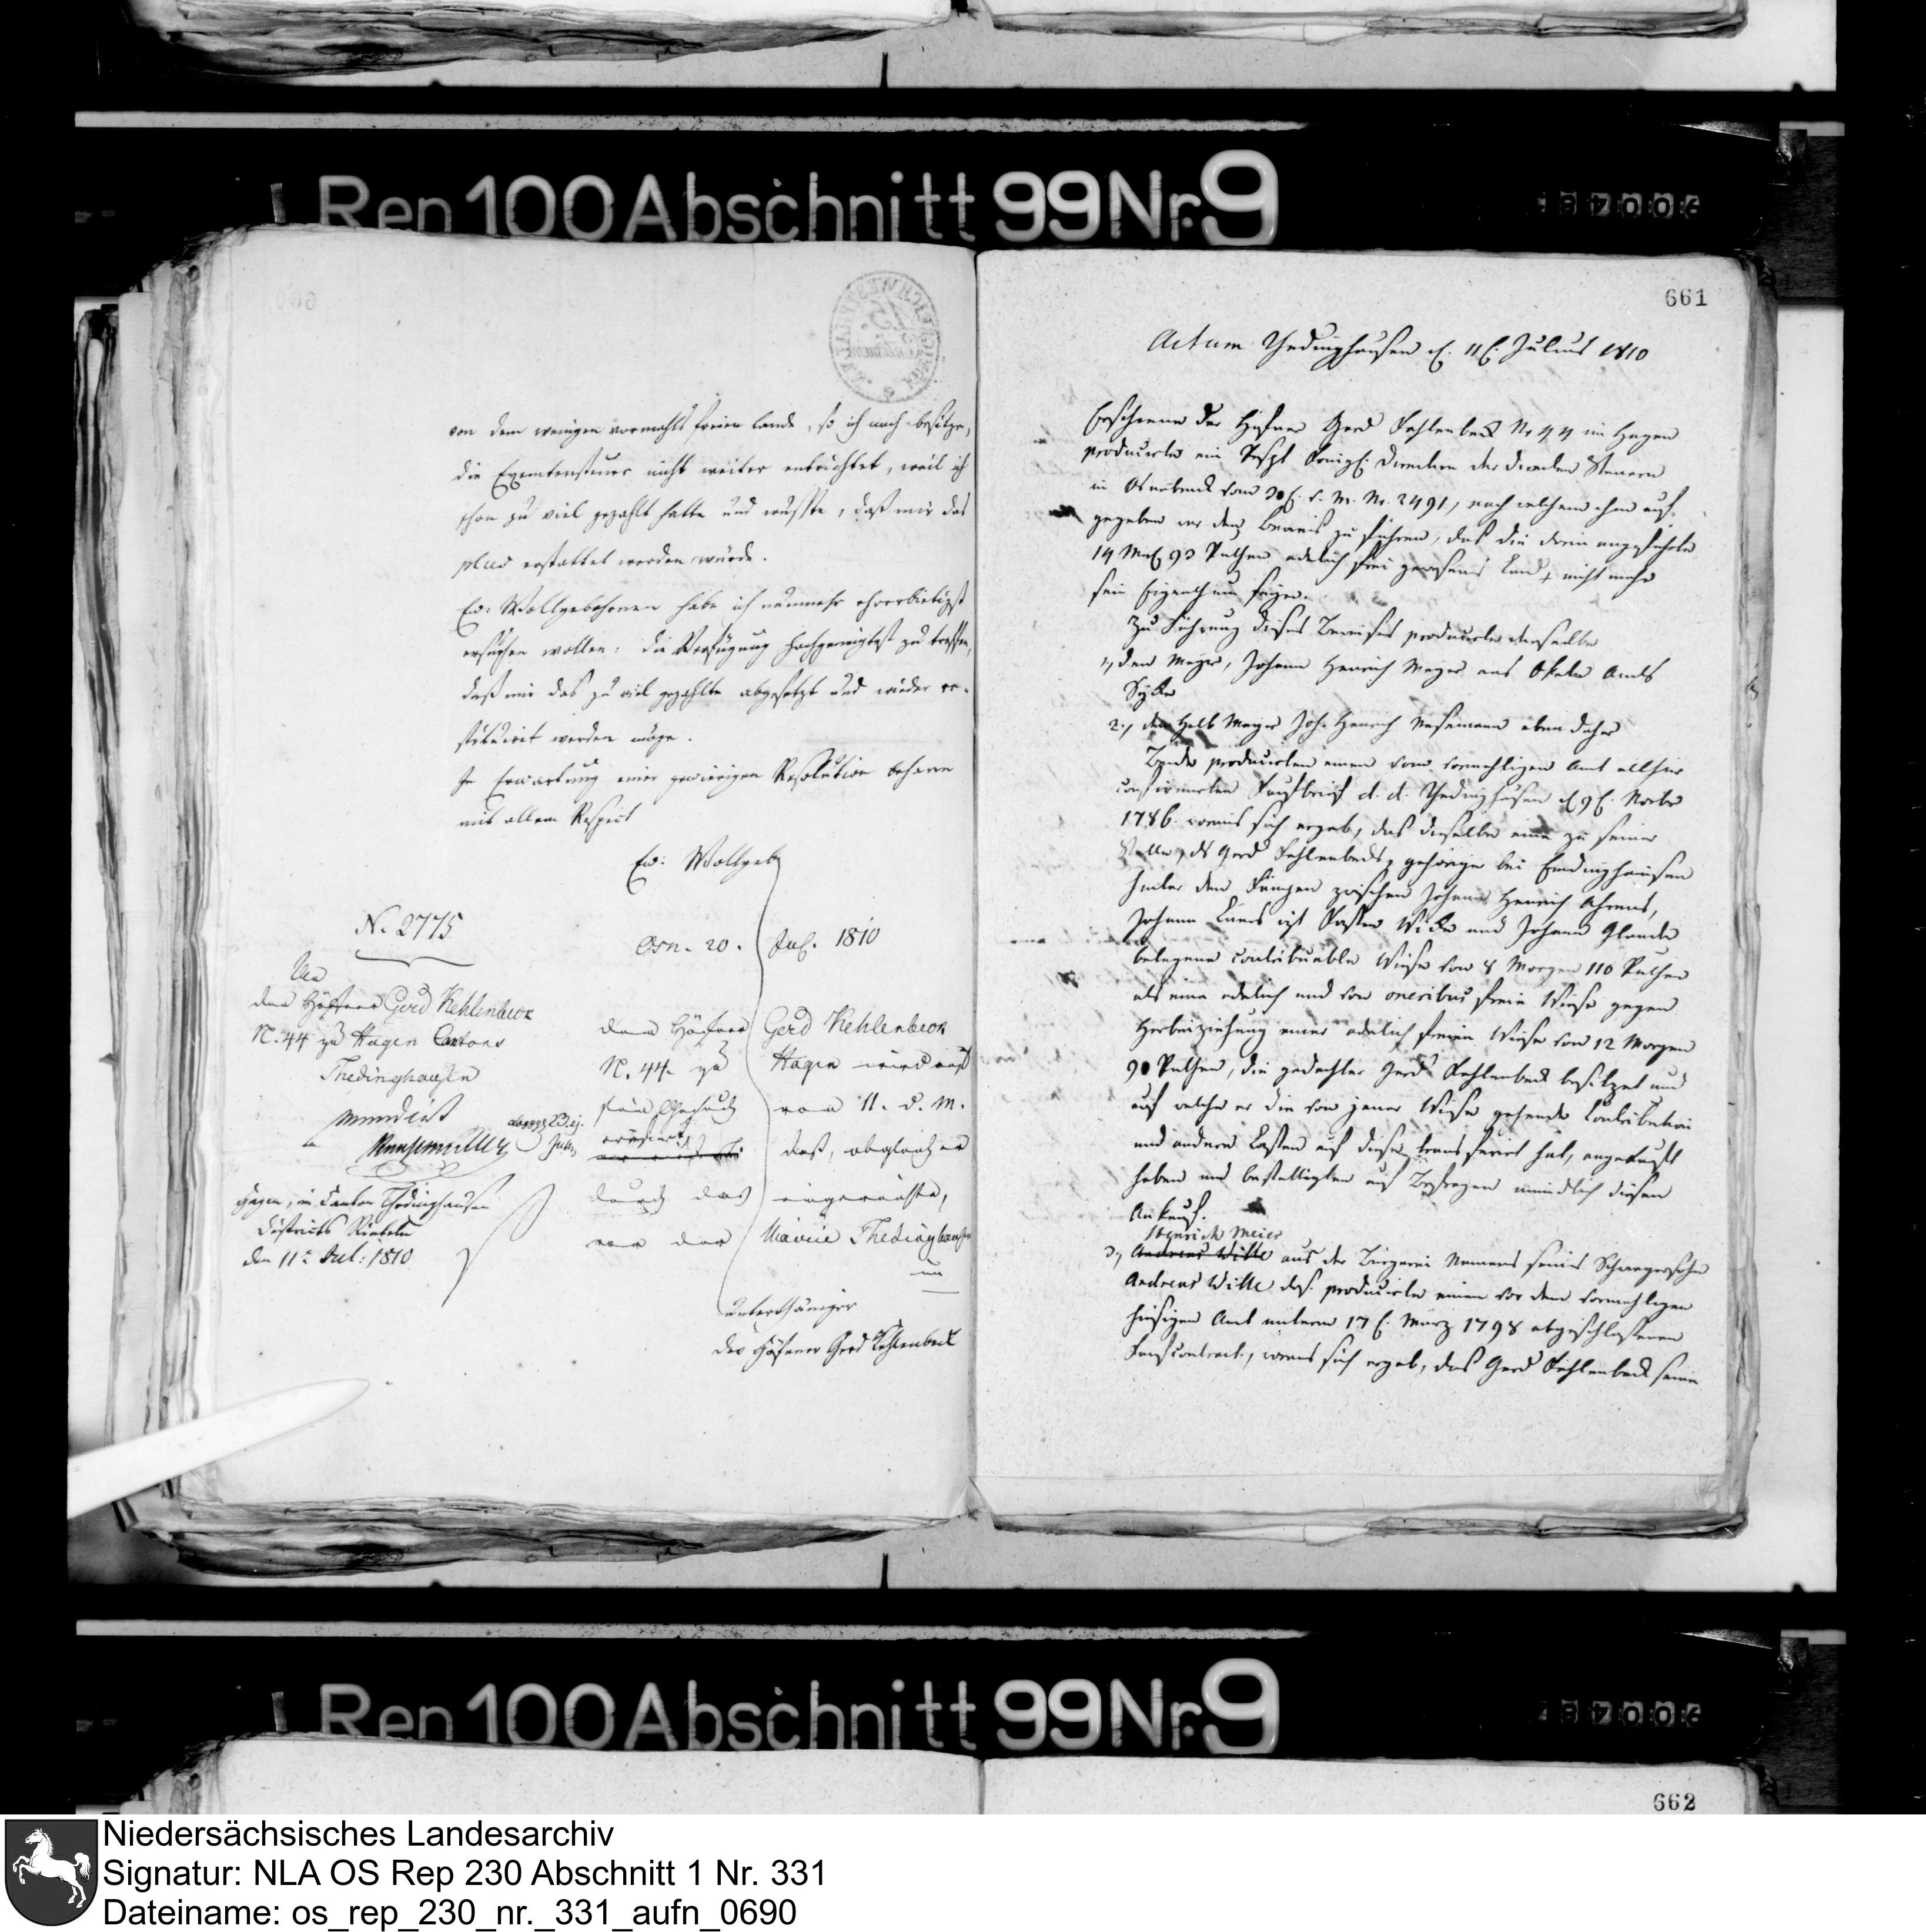 Rep 100 Abschnitt 99 Nr. 9
von dem wenigen vormahls freien lande, so ich noch besitze,
die Exemtensteuer nicht weiter entrichtet, weil ich
schon zu viel gezahlt hatte und wusste, daß mir das
plus erstattet werden würde.
Ew: Wollgebohrnen habe ich nunmehr ehrerbietigst
ersuchen wollen: die Verfügung hochgeneigtest zu treffen,
daß mir das zu viel gezahlte abgesetzt und wieder re-
stituirt werden möge.
In Erwartung einer gewierigen Resolution beharre
mit allem Respect
Ew: Wollgeb
N. 2775
An
den Höfener Gerd Kehlenbeck
N. 44 zu Hagen Cantons
Thedinghausen
mundirt
abgeg 23. ej.
Hagen, in Canton Thedinghausen
Districts Rinteln
den 11t Jul: 1810
Osn. 20. Jul. 1810
dem Höfener Gerd Kehlenbeck
N. 44 zu Hagen wird auf
sein Gesuch vom 11. d. M.
erwiedert daß, obgleich er
durch das eingereichte,
von der Mairie Thedinghausen
unterthäniger
der Höfener Gerd Kehlenbeck
661
Actum Thedinghausen d. 11t. Julius 1810
Erschiene der Höfener Gerd Kehlenbeck Nr 44 im Hagen
producirte ein Rescpt Königl. Direction der directen Steuern
in Osnabrück vom 30t. v. M. Nr. 2491, nach welchem ihm auf-
gegeben war den Beweis zu führen, daß die darin angeführte
14 Mrg 93 Ruthen adelich frei gewesenes Land, nicht mehr
sein Eigenthum seyen.
Zu Führung dieses Beweises producirte derselbe
1., den Meyer, Johann Henrich Meyer aus Okeln Amts
Syke
2., den Halb Meyer Joh. Henrich Wesemann eben daher
Beide producirten einen vom vormahligen Amt allhier
confirmirten Kaufbrief d. d. Thedinghausen d 9t. Novbr
1786. woraus sich ergab, daß dieselbe eine zu seiner
Stelle, des Gerd Kehlenbecks, gehörige bei Emtinghausen
hinter den Kämpen zwischen Johann Henrich Ahrens,
Johann Lüers ist Carsten Wicke und Johann Glander
belegene contribuable Wiese von 8 Morgen 110 Ruthen
als eine adelich und von oneribus freie Wiese gegen
Herbeiziehung einer adelich freien Wiese von 12 Morgen
90 Ruthen, die gedachter Gerd Kehlenbeck besitzet und
auf welche er die von jener Wiese gehende Contribution
und andere Lasten auf diese transferirt hat, angekauft
haben und bestättigten auf Befragen mündlich diesen
Ankauf.
Henrich Meier
3., Andreas Wille aus der Bürgerei Namens seines Schwiegersohn
Andreas Wille das. producirte einen vor dem vormahligen
hiesigen Amt unterm 17t. März 1798 abgeschlossenen
Kaufcontract, woraus sich ergab, daß Gerd Kehlenbeck seine
Rep 100 Abschnitt 99 Nr. 9
662
Niedersächsisches Landesarchiv
Signatur: NLA OS Rep 230 Abschnitt 1 Nr. 331
Dateiname: os_rep_230_nr._331_aufn_0690